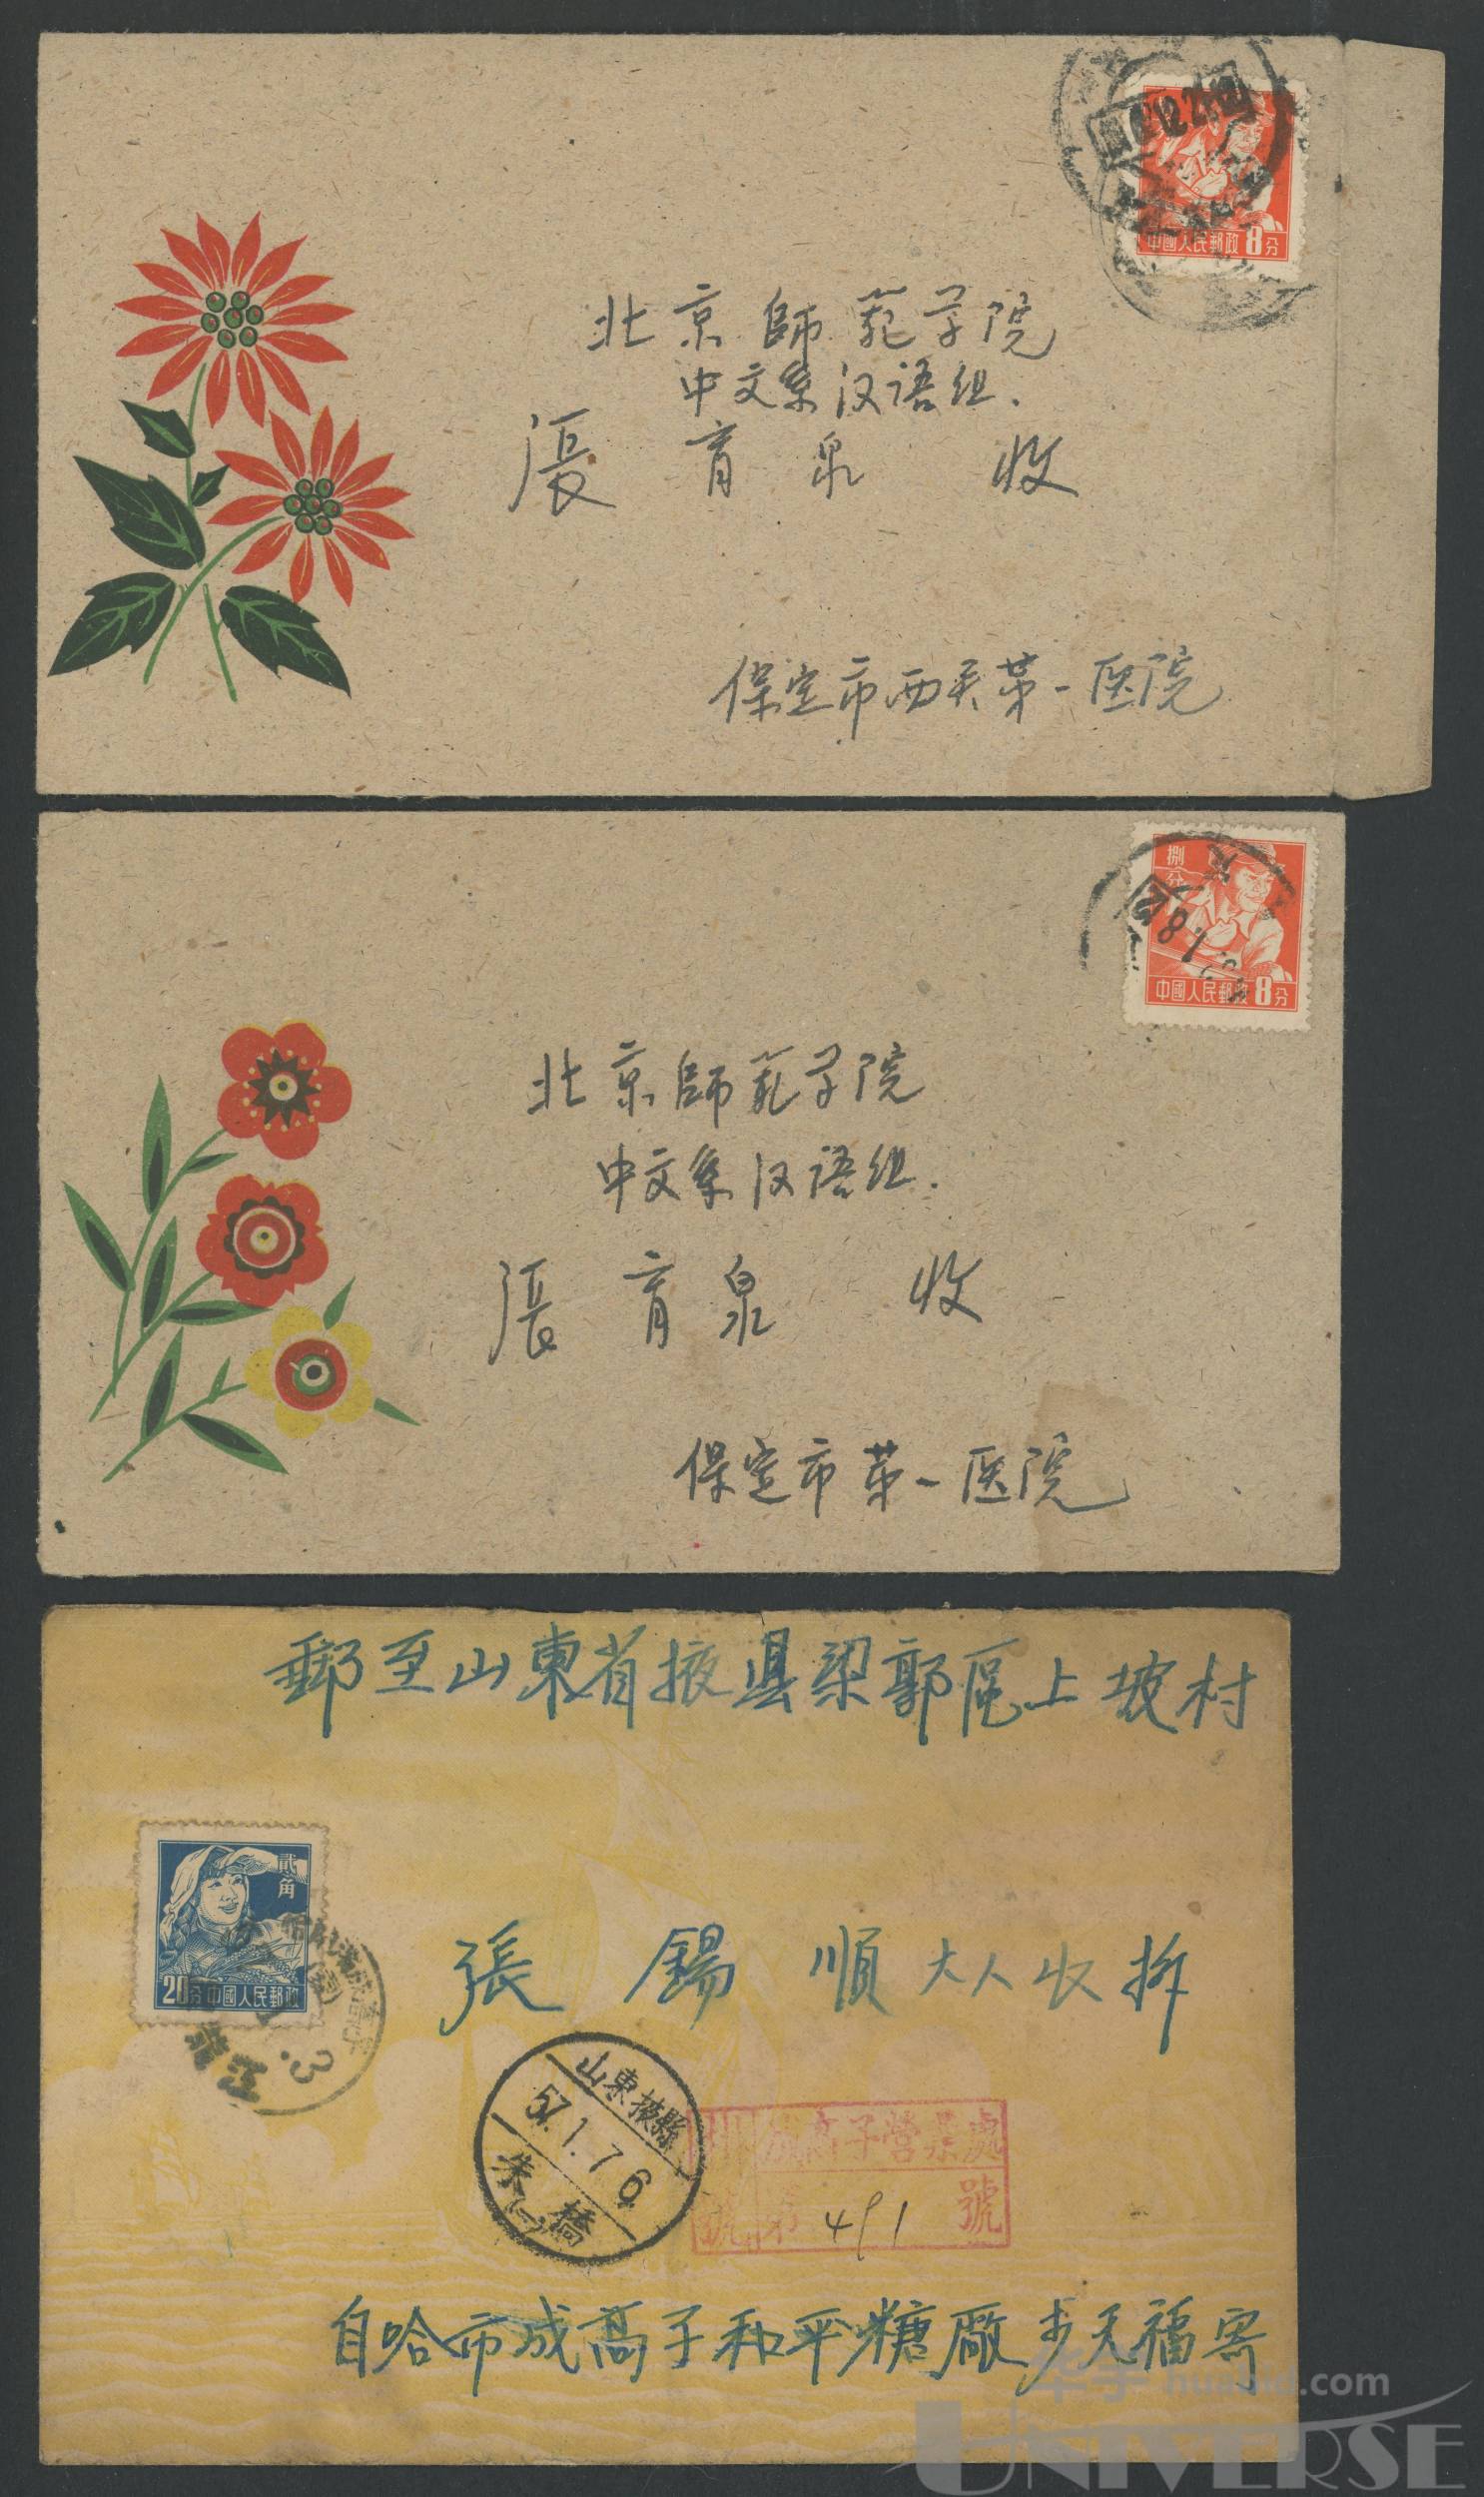 中國人民郵政8分
北京師范学院
中文系汉语组.
張育泉 收
保定市西关第一医院
捌分
中國人民郵政8分
北京師范学院
中文系汉语组.
張育泉 收
保定市第一医院
郵至山東省掖县梁郭區上坡村
貳角
20分中國人民郵政
張錫順大人收拆
山東掖縣
57.1.7 6
朱橋
(一)
成高子營業處
第491號
自哈市成高子和平糖廠步天福寄
华宇 huabid.com
UNIVERSE